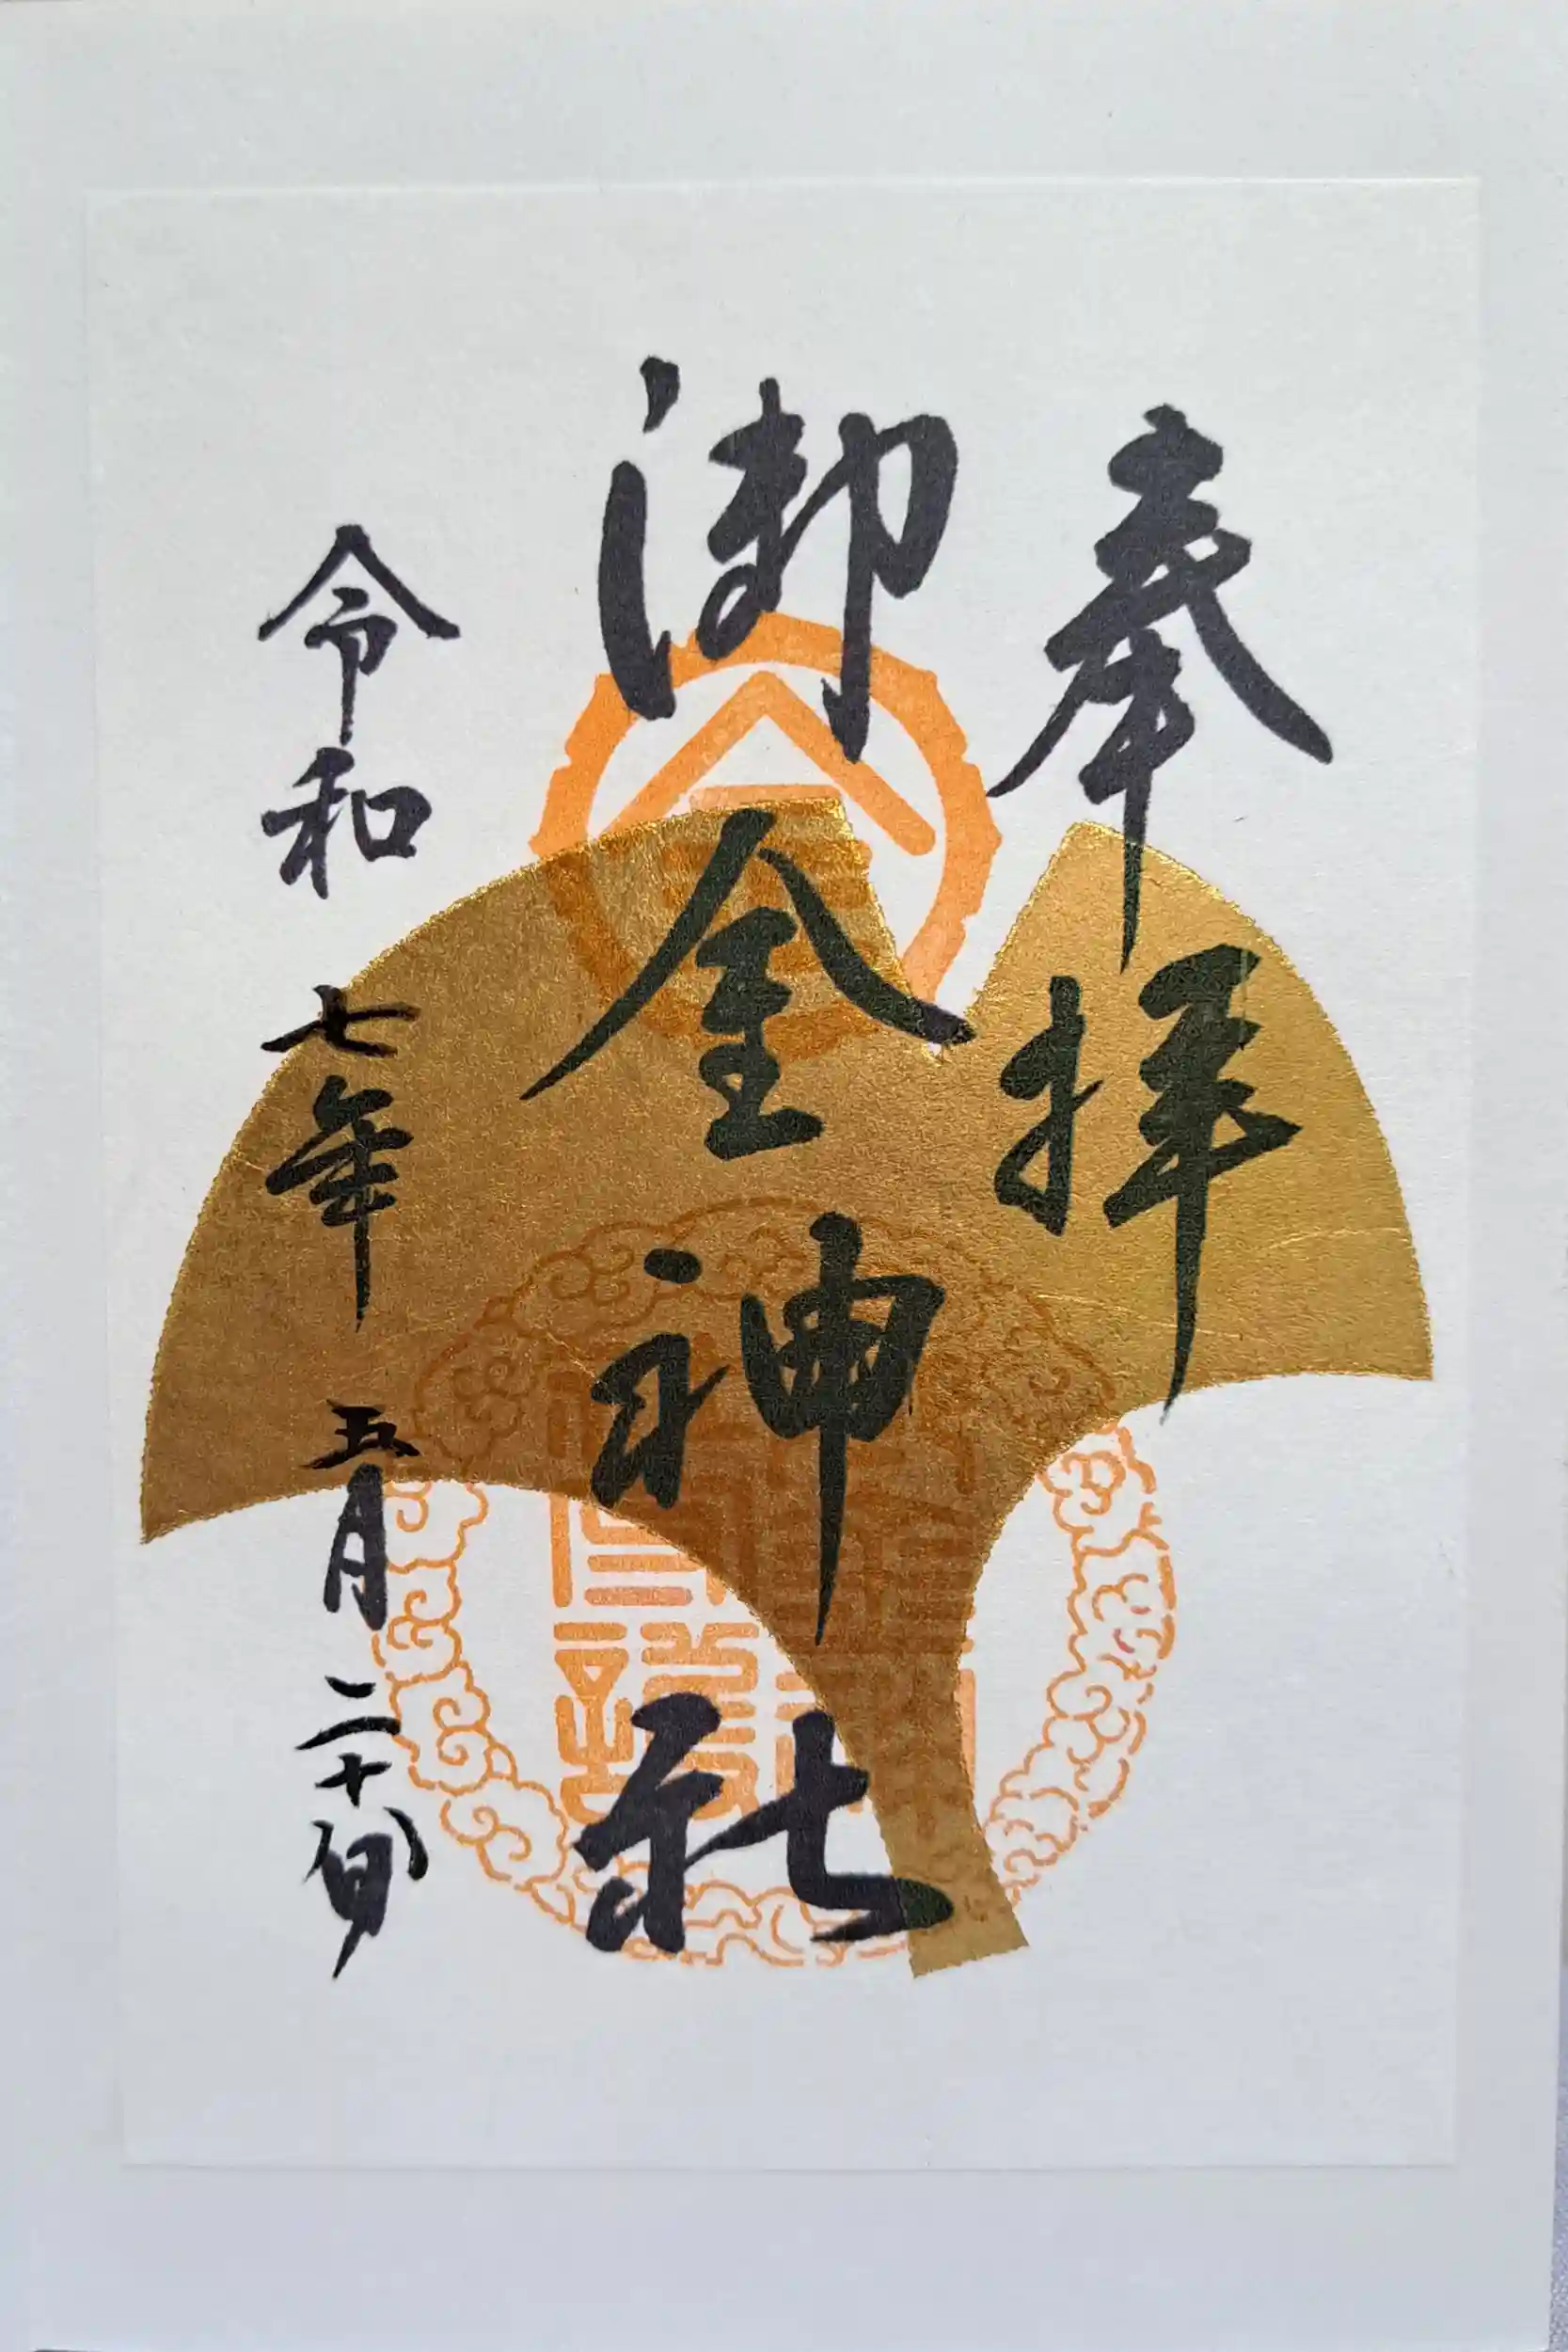 奉拝
御金神社
令和七年五月二十八日